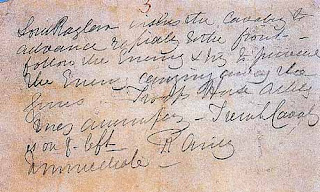 3
Lord Raglan wishes the Cavalry to
advance rapidly to the front –
follow the Enemy & try to prevent
the Enemy carrying away the
guns – Troop Horse Artillery
may accompany – French Cavalry
is on yr left
Immediate R Airey